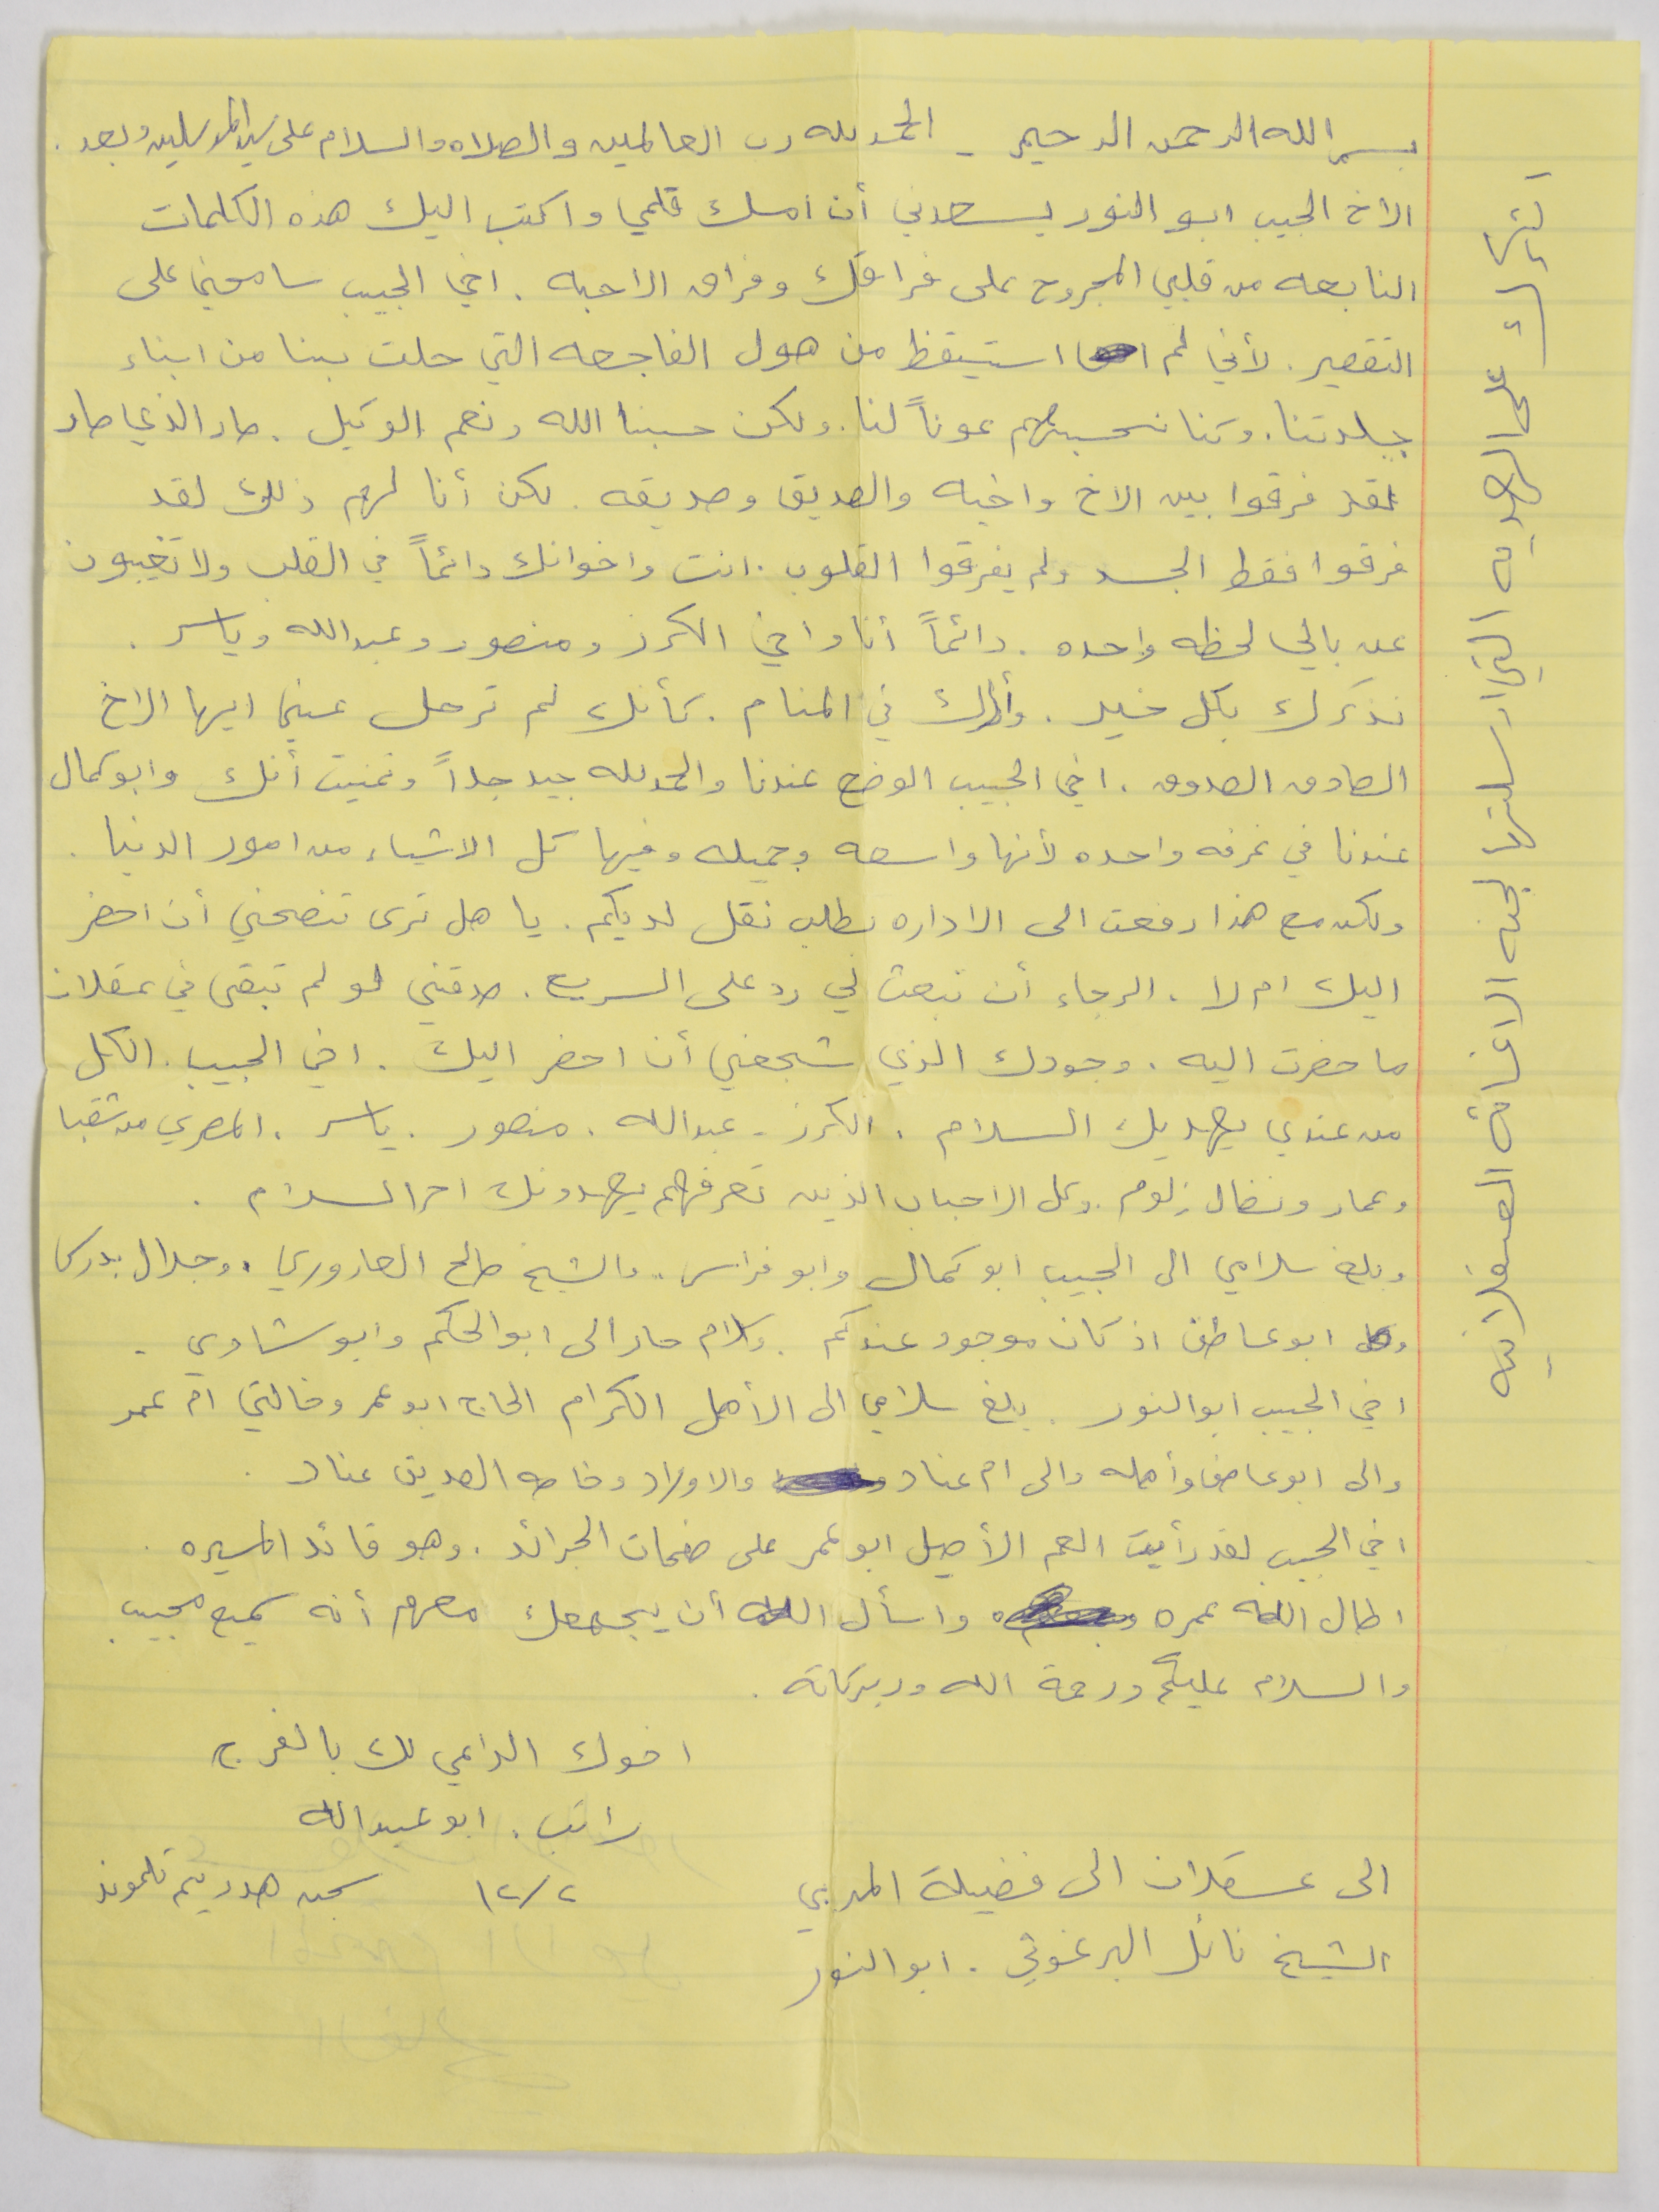 بسم الله الرحمن الرحيم - الحمد لله رب العالمين والصلاه والسلام على سيد المرسلين وبعد .
الاخ الحبيب ابو النور يسعدني أن امسك قلمي واكتب اليك هذه الكلمات
النابعه من قلبي المجروح على فراقك وفراق الاحبه . اخي الحبيب سامحني على
التقصير . لأني لم استيقظ من هول الفاجعه التي حلت بنا من ابناء
جلدتنا . وكنا نحسبهم عوناً لنا . ولكن حسبنا الله ونعم الوكيل . صار الذي صار
لقد فرقوا بين الاخ واخيه والصديق وصديقه . لكن أنا لهم ذلك لقد
فرقوا فقط الجسد ولم يفرقوا القلوب . انت واخوانك دائماً في القلب ولا تغيبون
عن بالي لحظه واحده . دائماً أنا واخي الكرز ومنصور وعبدالله وياسر .
نذكرك بكل خير . وأراك في المنام . كأنك لم ترحل عني ايها الاخ
الصادق الصدوق . اخي الحبيب الوضع عندنا والحمد لله جيد جداً وتمنيت أنك وابو كمال
عندنا في غرفه واحده لأنها واسعه وجميله وفيها كل الاشياء من امور الدنيا .
ولكن مع هذا رفعت الى الاداره بطلب نقل لديكم . يا هل ترى تنصحني أن احضر
اليك ام لا . الرجاء أن تبعث لي رد على السريع . صدقني لو لم تبقى في عسقلان
ما حضرت اليه . وجودك الذي شجعني أن احضر اليك . اخي الحبيب . الكل
من عندي يهديك السلام . الكرز - عبدالله . منصور . ياسر . المصري من شقبا
وعمار ونضال زلوم . وكل الاحباب الذين تعرفهم يهدونك احر السلام .
وبلغ سلامي الى الحبيب ابو كمال وابو فراس . والشيخ صالح العاروري . وجلال بدرك
ابو عاطف اذ كان موجود عندكم . وسلام حار الى ابو الحكم وابو شاوي .
اخي الحبيب ابو النور . بلغ سلامي الى الأهل الكرام الحاج ابو عمر وخالتي ام عمر
والى ابو عاصف وأهله والى ام عناد والاولاد وخاصه الصديق عناد .
اخي الحبيب لقد رأيت العم الأصيل ابو عمر على صفحات الجرائد . وهو قائد المسيره .
اطال الله عمره واسأل الله أن يجمعك معهم أنه سميع مجيب
والسلام عليكم ورحمة الله وبركاته .
اخوك الداعي لك بالفرج
راتب . ابو عبدالله
١٢/٢ سجن هدريم تلموند
الى عسقلان الى فضيلة المربي
الشيخ نائل البرغوثي . ابو النور
على الهديه التي ارسلتها لجنه الاغاثة العسقلانيه